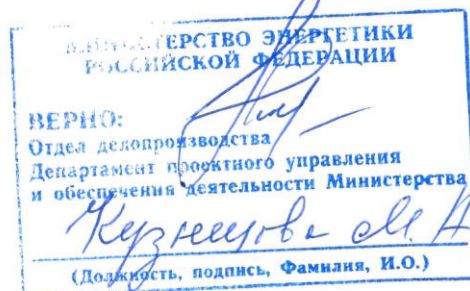 МИНИСТЕРСТВО ЭНЕРГЕТИКИ
РОССИЙСКОЙ ФЕДЕРАЦИИ
ВЕРНО:
Отдел делопроизводства
Департамент проектного управления
и обеспечения деятельности Министерства
Кузнецова М. А
(Должность, подпись, Фамилия, И.О.)